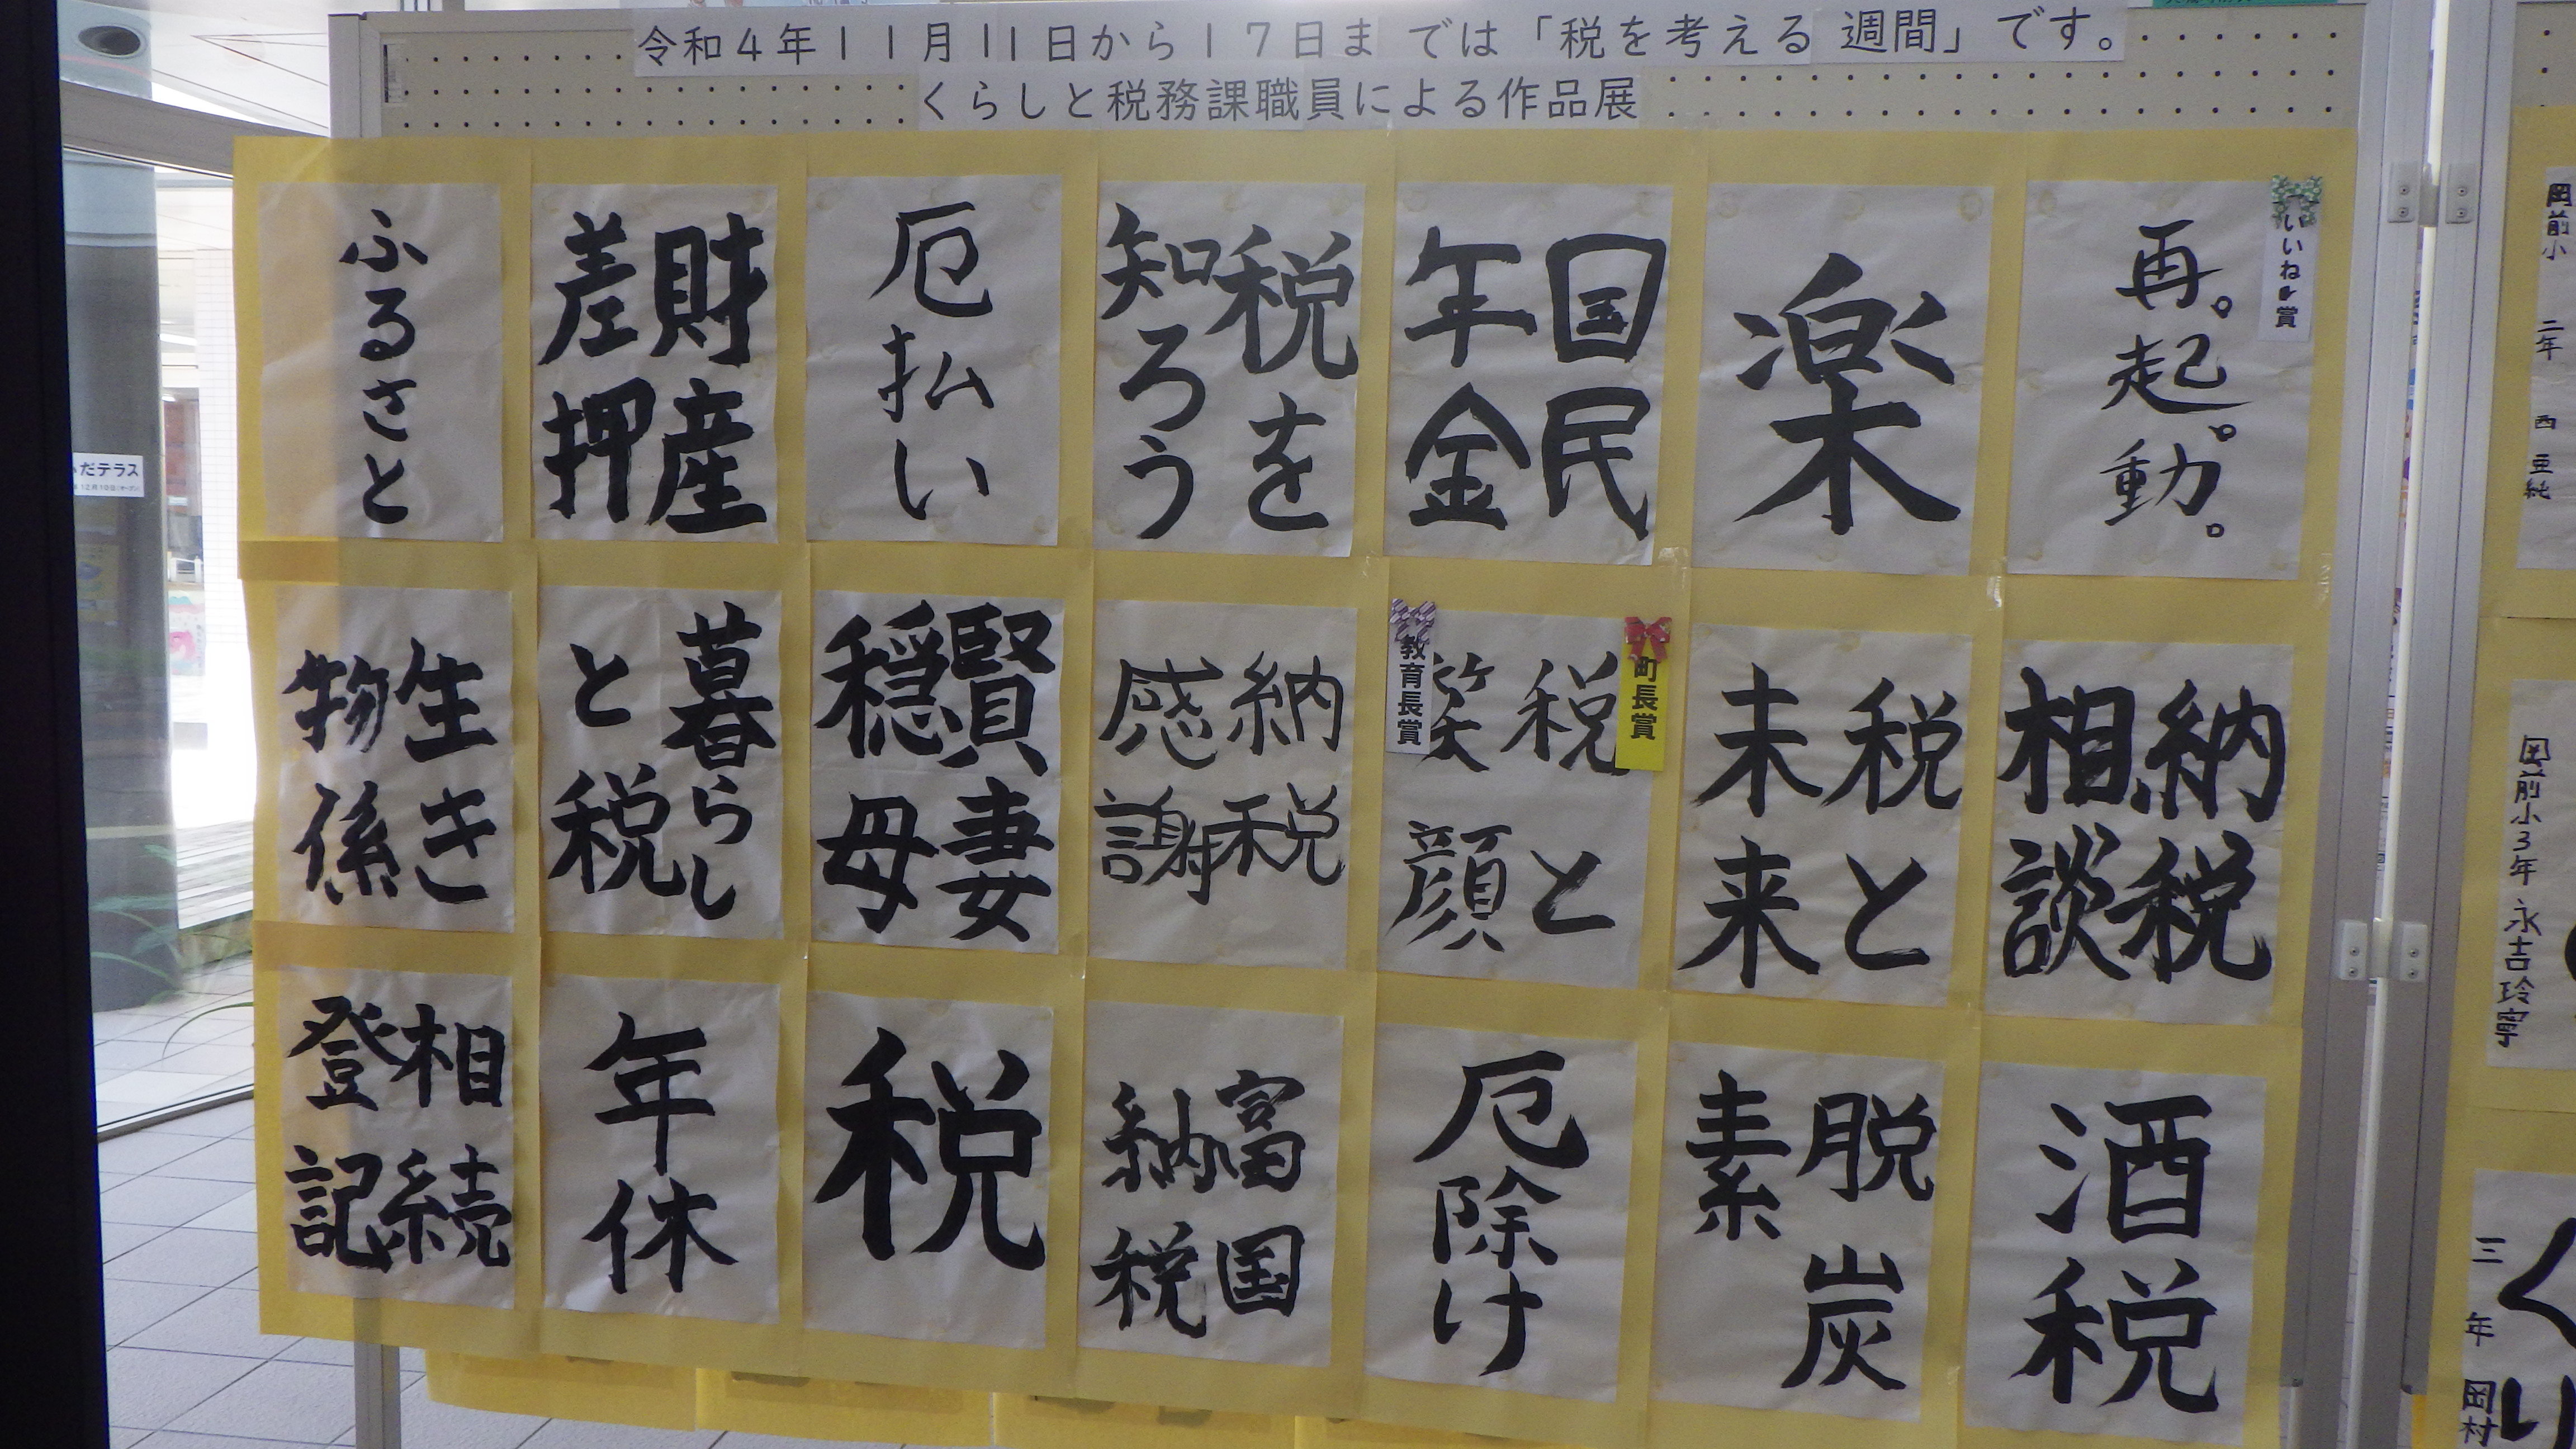 令和4年11月11日から17日までは「税を考える週間」です。
くらしと税務課職員による作品展
いいね賞
再。起。動。
楽
国民
年金
税を
知ろう
厄払い
財産
差押
ふるさと
納税
相談
税と
未来
町長賞
税と
笑顔
教育長賞
納税
感謝
賢妻
穏母
暮らし
と税
生き
物係
酒税
脱炭
素
厄除け
富国
納税
税
年休
相続
登記
だテラス
12月10日(オープン)
岡前小 二年 西 亜純
岡前小3年 永吉玲寧
三年 岡村